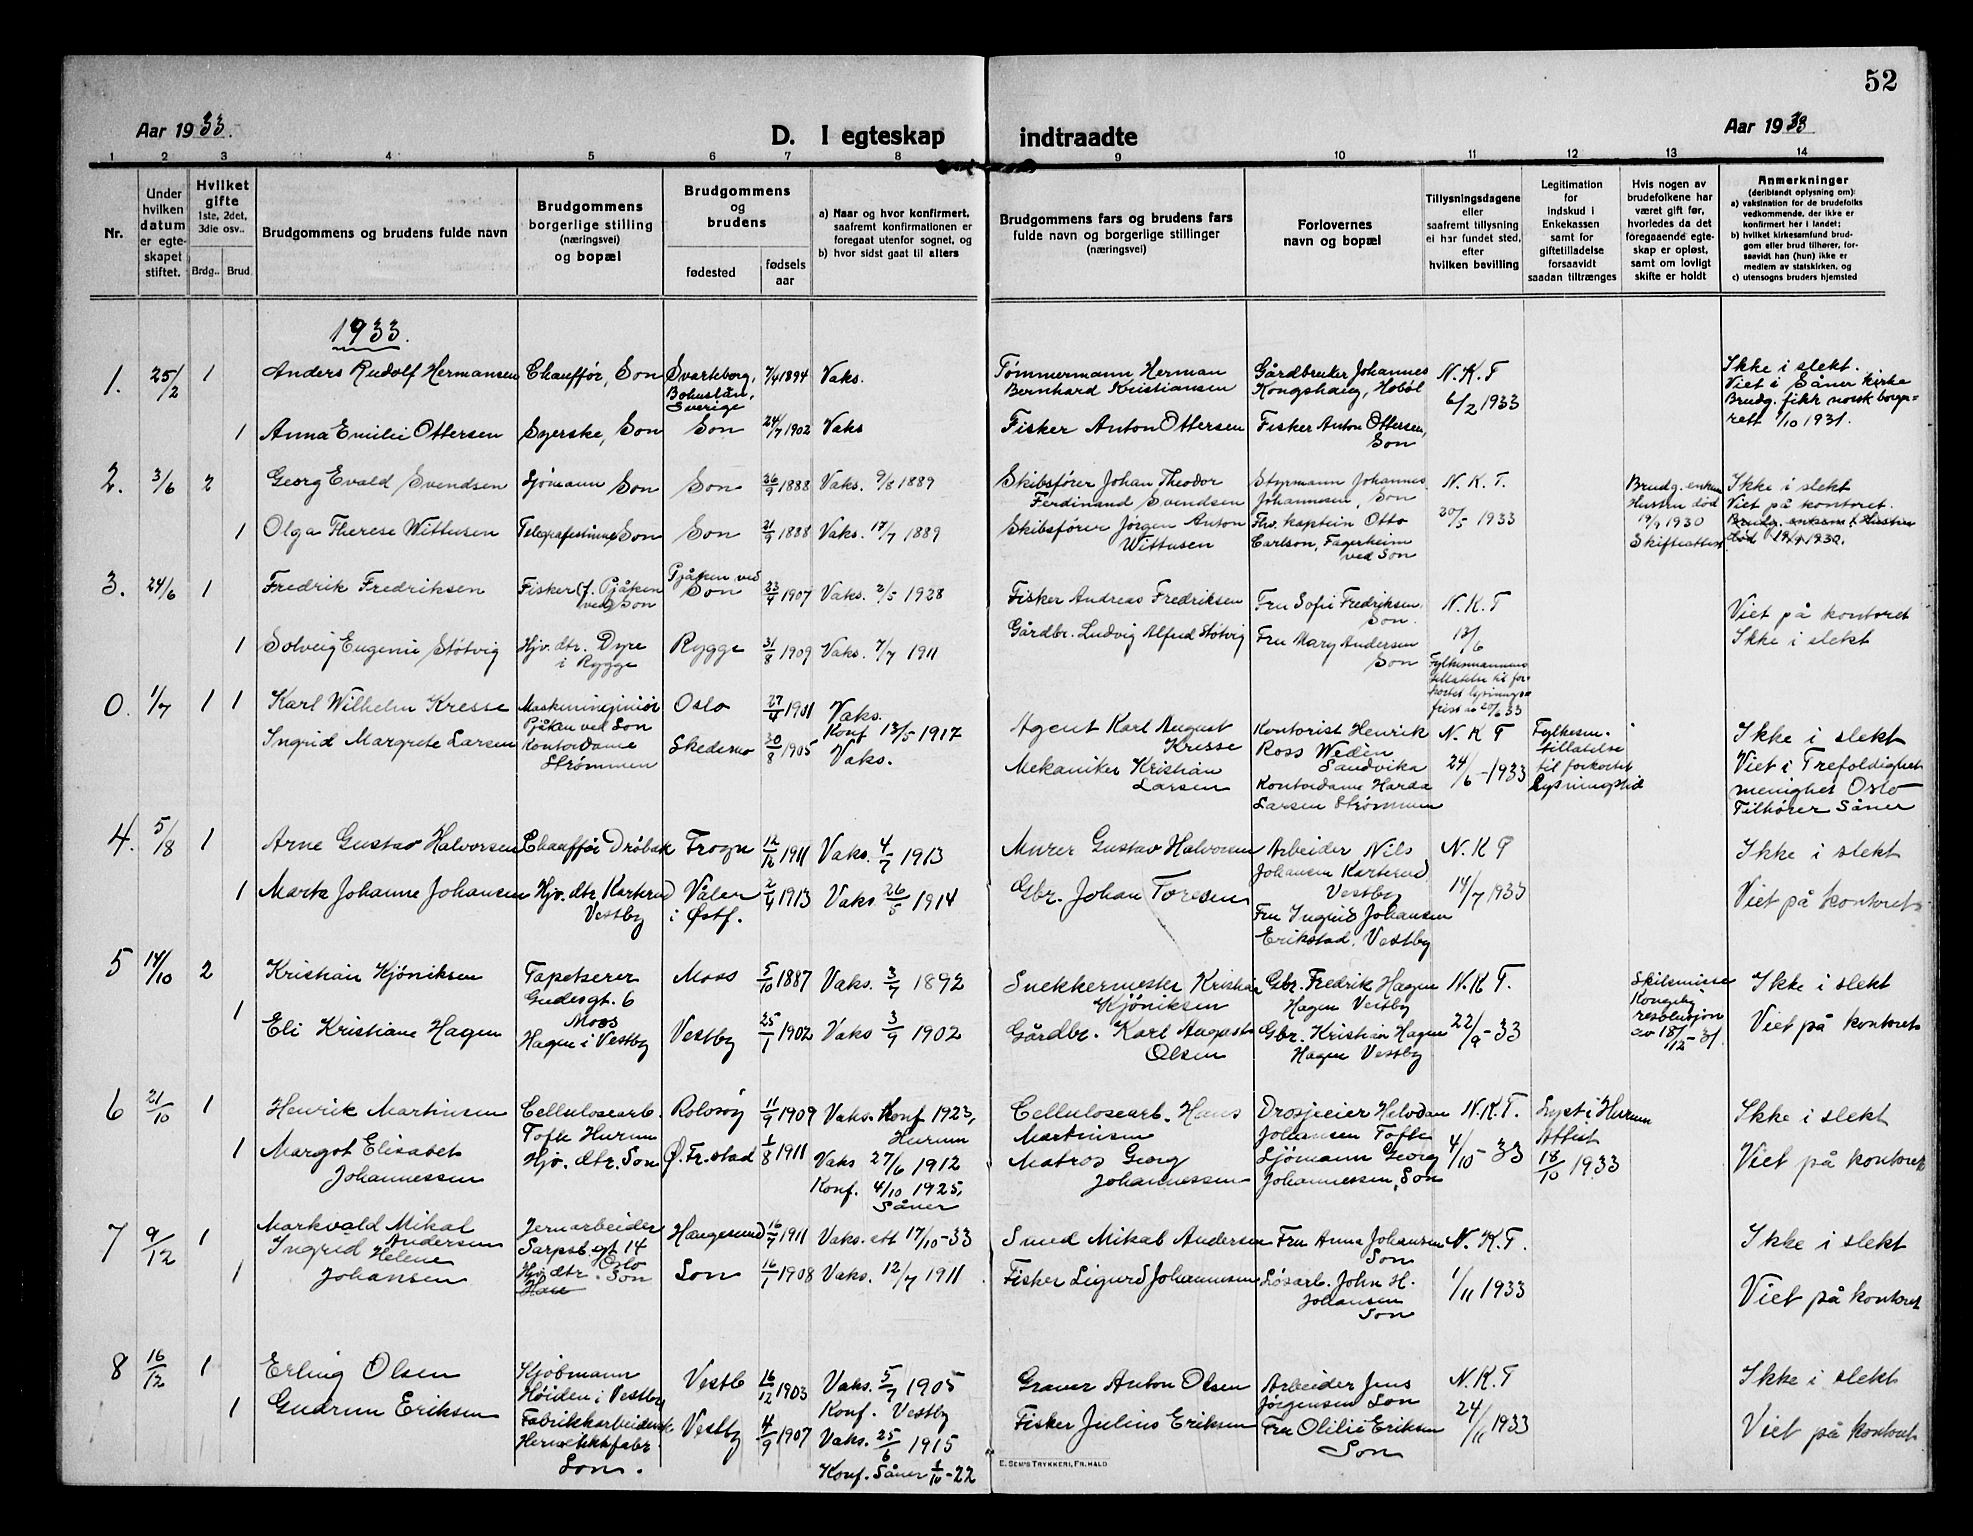 52
Aar 1933.
D. I egteskap indtraadte
Aar 1933
1 2 3 4 5 6 7 8 9 10 11 12 13 14
Nr.
Under hvilken datum er egteskapet stiftet.
Hvilket gifte
1ste, 2det, 3die osv..
Brdg..
Brud.
Brudgommens og brudens fulde navn
Brudgommens borgerlige stilling (næringsvei) og bopæl
Brudgommens og brudens
fødested
fødsels aar
a) Naar og hvor konfirmert, saafremt konfirmationen er foregaat utenfor sognet, og
b) hvor sidst gaat til alters
Brudgommens fars og brudens fars fulde navn og borgerlige stillinger (næringsvei)
Forlovernes navn og bopæl
Tillysningsdagene eller saafremt tillysning ei har fundet sted, efter hvilken bevilling
Legitimation for Indskud i Enkekassen samt for giftetilladelse forsaavidt saadan tiltrænges
Hvis nogen av brudefolkene har været gift før, hvorledes da det foregaaende egteskap er opløst, samt om lovligt skifte er holdt
Anmerkninger
(deriblandt oplysning om):
a) vaksination for de brudefolks vedkommende, der ikke er konfirmert her i landet;
b) hvilket kirkesamfund brudgom eller brud tilhører, forsaavidt han (hun) ikke er medlem av statskirken, og
c) utensogns bruders hjemsted
1933.
1. 25/2 1 Anders Rudolf Hermansen Chauffør, Son Svarteborg, Bohuslän, Sverige 7/4 1894 Vaks. Tømmermann Herman Bernhard Kristiansen Gårdbruker Johannes Kongshaug, Hobøl N.K.T 6/2 1933 Ikke i slekt. Viet i Såner kirke Brudg. fikk norsk borgerrett
1 Anna Emilie Ottersen Syerske, Son Son 24/7 1902 Vaks Fisker Anton Ottersen Fisker Anton Ottersen, Son
2. 3/6 2 Georg Evald Svendsen Sjømann Son Son 26/9 1888 Vaks. 9/8 1889 Skibsfører Johan Theodor Ferdinand Svendsen Styrmann Johannes Johannesen, Son N.K.T. 20/5 1933 Brudg. enkem. Hustru død 19/9 1930 Skifteattest Ikke i slekt Viet på kontoret.
1 Olga Therese Wittusen Telegrafestinne, Son Son 21/9 1888 Vaks. 17/7 1889 Skibsfører Jørgen Anton Wittusen Fhv. kaptein Otto Carlson, Fagerheim ved Son
3. 24/6 1 Fredrik Fredriksen Fisker, Pjåken ved Son Pjåken ved Son 23/4 1907 Vaks. 2/5 1928 Fisker Andreas Fredriksen Fru Sofie Fredriksen Son. N.K.T 13/6 Fylkesmannens tillatelse til forkortet lysningsfrist av 20/6 33 Viet på kontoret Ikke i slekt
1 Solveig Eugenie Støtvig Hjv. dtr. Dyre i Rygge Rygge 31/8 1909 Vaks. 7/7 1911 Gårdbr. Ludvig Alfred Støtvig Fru Mary Andersen Son
0. 1/7 1 1 Karl Wilhelm Kresse Maskiningeniør Pjåken ved Son Oslo 27/4 1901 Vaks. Konf 13/5 1917 Agent Karl August Kresse Kontorist Henrik Ross Wedèn Sandvika N.K.T 24/6 - 1933 Fylkesm. tillatelse til forkortet lysningstid Ikke i slekt Viet i Trefoldighet menighet Oslo Tilhører Såner
Ingrid Margrete Larsen Kontordame Strømmen Skedsmo 30/8 1905 Vaks. Mekaniker Kristian Larsen Kontordame Harda Larsen Strømmen
4. 5/8 1 Arne Gustav Halvorsen Chauffør Drøbak Frogn 12/12 1911 Vaks. 4/7 1913 Murer Gustav Halvorsen Arbeider Nils Johansen Karterud Vestby N.K.T 14/7 1933 Ikke i slekt
1 Marta Johanne Johansen Hjv. dtr. Karterud Vestby Våler i Østf. 2/9 1913 Vaks. 26/5 1914 Gbr. Johan Toresen Fru Ingrid Johansen Erikstad, Vestby Viet på kontoret
5 14/10 2 Kristian Kjøniksen Tapetserer Gudesgt. 6 Moss Moss 5/10 1887 Vaks. 3/7 1892 Snekkermester Kristian Kjøniksen Gbr. Fredrik Hagen Hagen Vestby N.K.T. 22/9 - 33 Skilsmisse Kongelig resolusjon av 18/12 - 31 Ikke i slekt
1 Eli Kristiane Hagen Hagen i Vestby Vestby 25/1 1902 Vaks 3/9 1902 Gårdbr. Karl August Olsen Gbr. Kristian Hagen Hagen Vestby Viet på kontoret
6 21/10 1 Henrik Martinsen Cellulosearb. Tofte Hurum Rolvsøy 11/9 1909 Vaks. Konf 1923, Hurum Cellulosearb. Hans Martinsen Drosjeeier Halvdan Johansen Tofte N.K.T. 4/10 - 33 Lyst i Hurum Attest 18/10 1933 Ikke i slekt
1 Margot Elisabet Johannessen Hjv. dtr. Son Ø. Fr.stad 1/8 1911 Vaks 27/6 1912 Konf. 4/10 1925, Såner Matros Georg Johannessen Sjømann Georg Johannessen, Son Viet på kontoret
7 9/12 1 Markvald Mikal Andersen Jernarbeider Sarpsb.gt 14 Oslo Haugesund 16/7 1911 Vaks. att 17/10 - 33 Smed Mikal Andersen Fru Anna Johansen Son N.K.T. 1/11 1933 Ikke i slekt
1 Ingrid Helene Johansen Hjv. dtr. Son Son 16/1 1908 Vaks. 12/7 1911 Fisker Sigurd Johannesen Løsarb. John H. Johansen Son Viet på kontoret
8 16/12 1 Erling Olsen Kjøbmann Høiden i Vestby Vestb 16/12 1903 Vaks. 5/7 1905 Konf. Vestby Graver Anton Olsen Arbeider Jens Jørgensen Son N.K.T 24/11 1933 Ikke i slekt
1 Gudrun Eriksen Fabrikkarbeiderske Hermetikkfabr. Son. Vestby 4/9 1907 Vaks. 25/6 1915 Konf. Såner 1/10 - 22 Fisker Julius Eriksen Fru Olilie Eriksen Son Viet på kontoret
E. SEM'S TRYKKERI, FR.HALD